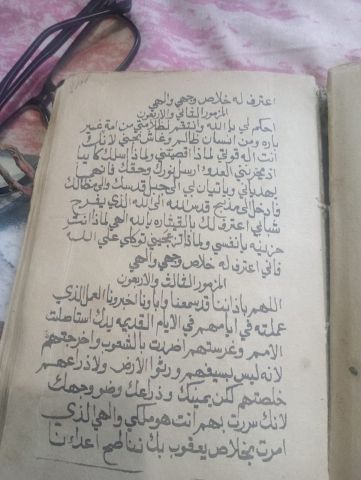 اعترف له خلاص وجهي والهي
المزمور الثاني والاربعون
احكم لي يا الله وانتقم لظلامتي من امة غير
باره ومن انسان ظالم وغاش نجيني لانك
انت اله قوتي لماذا اقصيتني ولماذا اسلك كايبا
اذ يحزنني العدو ارسل نورك وحقك فانهما
يهدياني وياتيان بي الي جبل قدسك والي مظالك
فادخل الي مذبح قدس الله الي الله الذي يفرح
شبابي اعترف لك بالقيثاره يا الله الهي لماذا انت
حزينه يا نفسي ولماذا تزعجيني توكلي علي الله
فاني اعترف له خلاص وجهي والهي
المزمور الثالث والاربعون
اللهم باذاننا قد سمعنا واباونا اخبرونا العمل الذي
عملته في ايامهم في الايام القديمه يدك استاصلت
الامم وغرستهم اضررت بالشعوب واخرجتهم
لانه ليس بسيفهم ورثوا الارض ولا ذراعهم
خلصتهم لكن يمينك وذراعك وضو وجهك
لانك سررت بهم انت هو ملكي والهي الذي
امرت بخلاص يعقوب بك ننطح اعداءنا